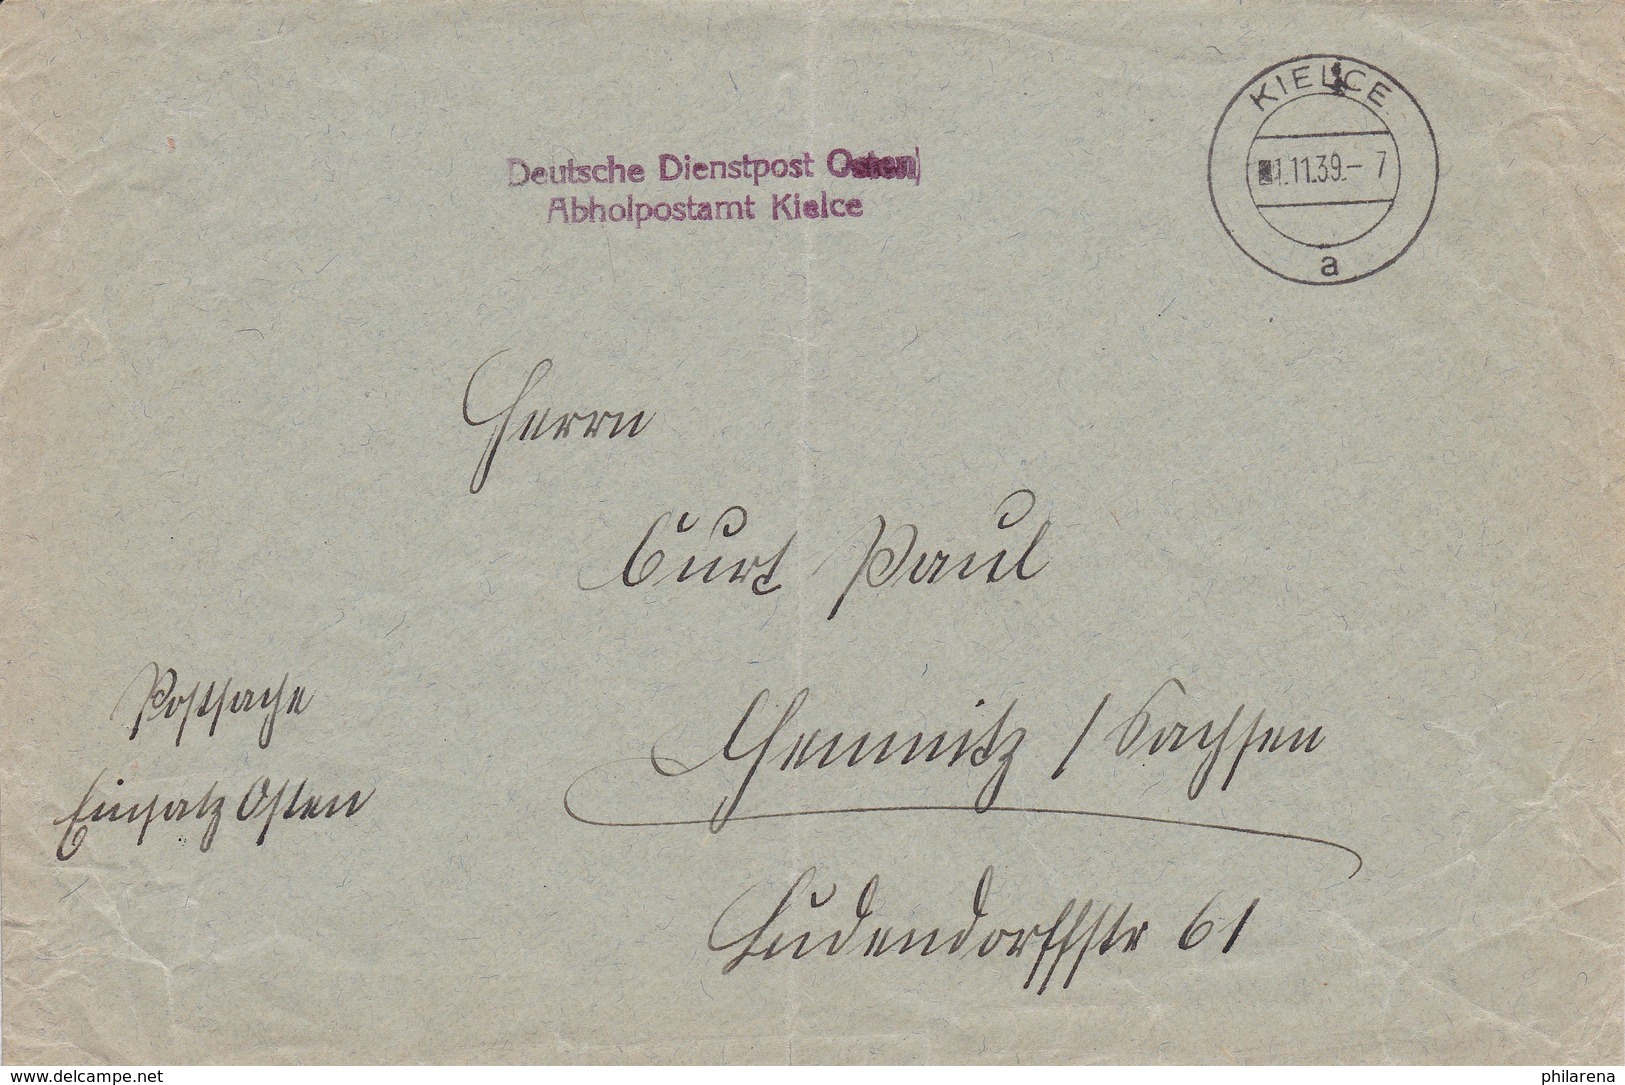 KIELCE
1.11.39.- 7
a
Deutsche Dienstpost Osten
Abholpostamt Kielce
Herrn
Curt Paul
Chemnitz / Sachsen
Ludendorffstr 61
Postsache
Einsatz Osten
www.delcampe.net
philarena